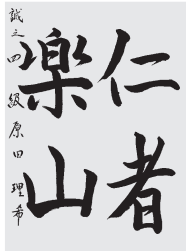 仁者
楽山
誠之四級原田理希